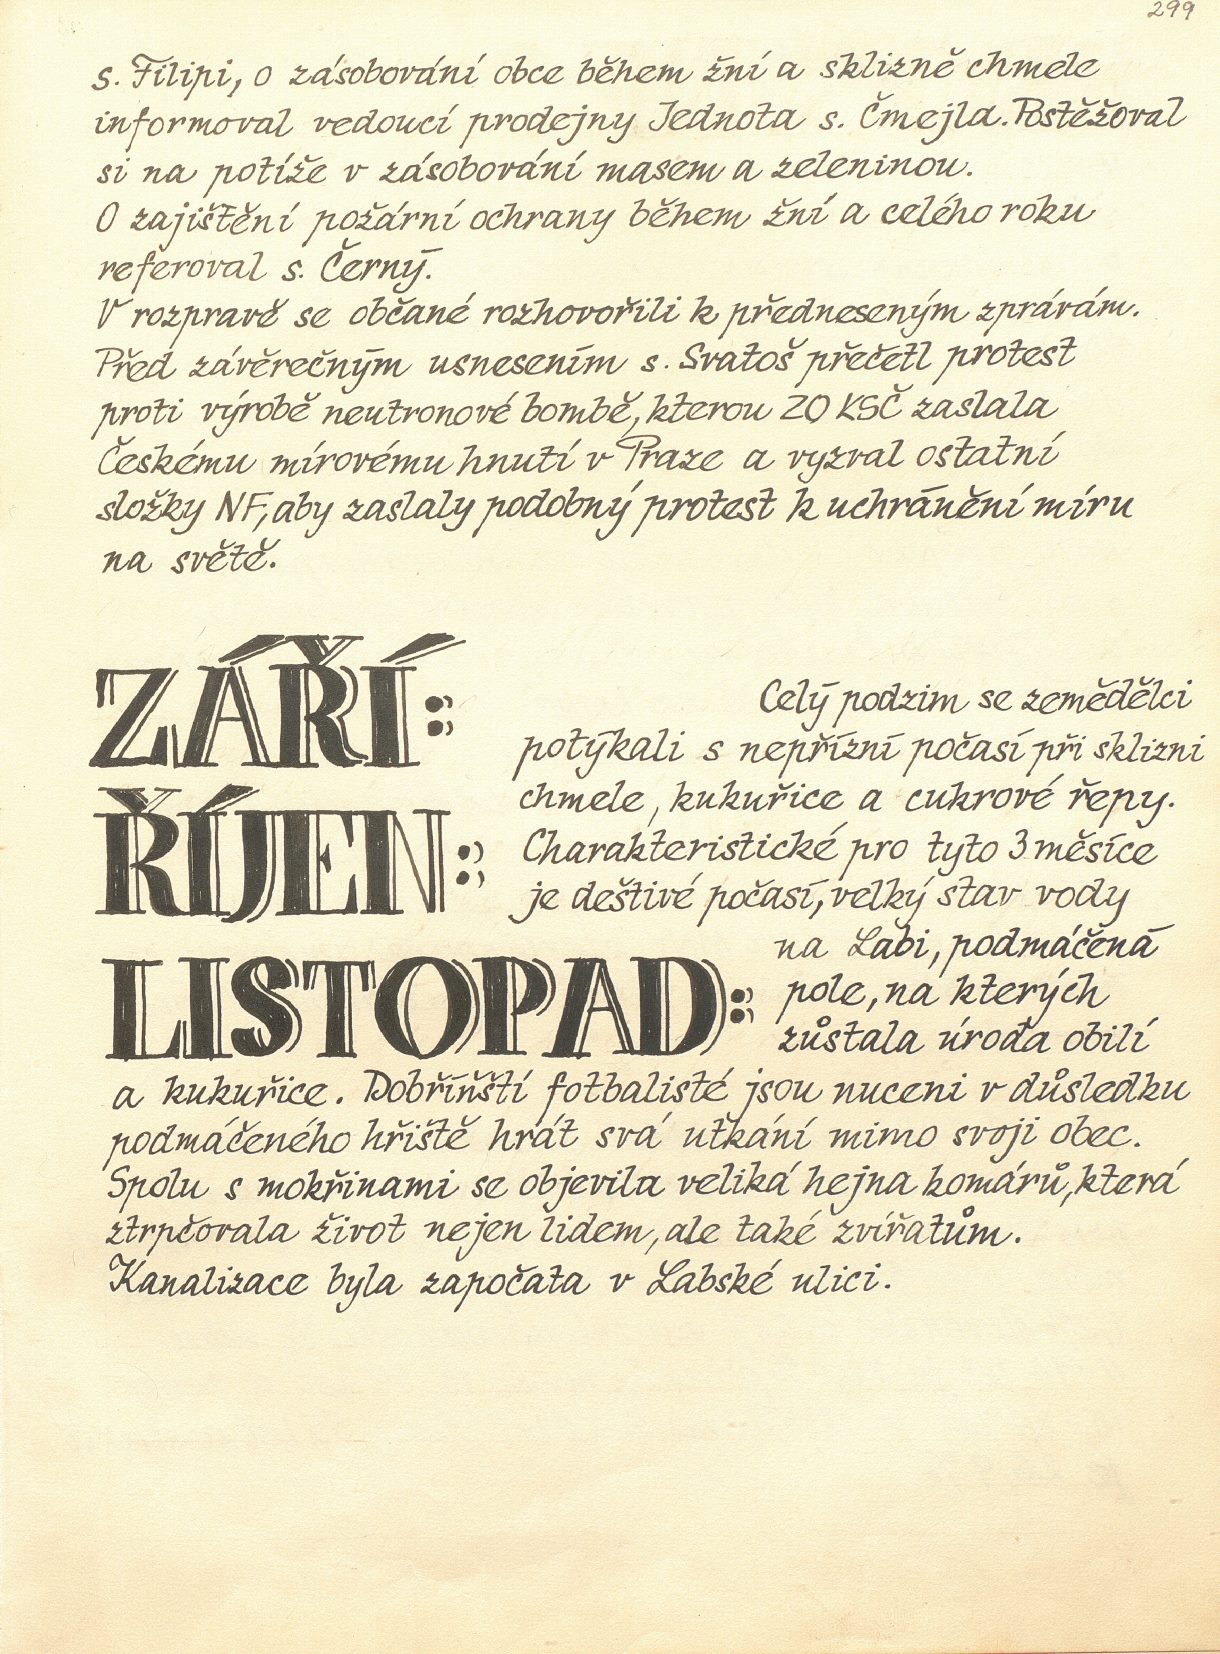 299
s. Filipi, o zásobování obce během žní a sklizně chmele
informoval vedoucí prodejny Jednota s. Čmejla. Postěžoval
si na potíže v zásobování masem a zeleninou.
O zajištění požární ochrany během žní a celého roku
referoval s. Černý.
V rozpravě se občané rozhovořili k předneseným zprávám.
Před závěrečným usnesením s. Svatoš přečetl protest
proti výrobě neutronové bombě, kterou ZO KSČ zaslala
Českému mírovému hnutí v Praze a vyzval ostatní
složky NF, aby zaslaly podobný protest k uchránění míru
na světě.
ZÁŘÍ:
ŘÍJEN:
LISTOPAD:
Celý podzim se zemědělci
potýkali s nepřízní počasí při sklizni
chmele, kukuřice a cukrové řepy.
Charakteristické pro tyto 3 měsíce
je deštivé počasí, velký stav vody
na Labi, podmáčená
pole, na kterých
zůstala úroda obilí
a kukuřice. Dobříňští fotbalisté jsou nuceni v důsledku
podmáčeného hřiště hrát svá utkání mimo svoji obec.
Spolu s mokřinami se objevila veliká hejna komárů, která
ztrpčovala život nejen lidem, ale také zvířatům.
Kanalizace byla započata v Labské ulici.